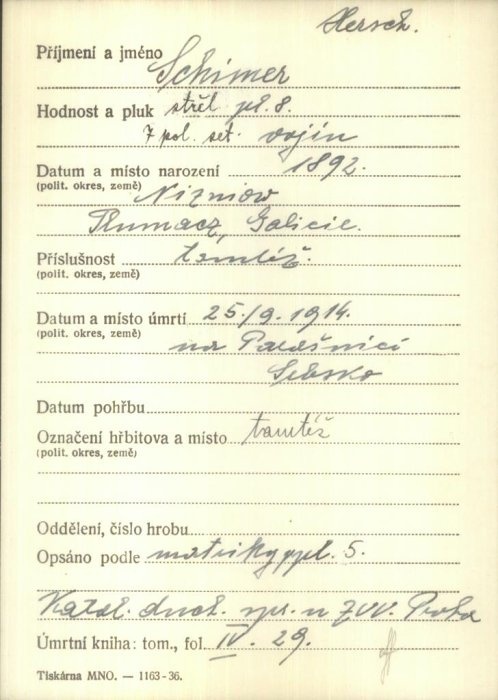 Hersch.
Příjmení a jméno Schimer
Hodnost a pluk střel. pl. 8.
7 pol. set. vojín
Datum a místo narození 1892.
(polit. okres, země) Nizniow
Tlumacz, Galicie.
Příslušnost tamtéž.
(polit. okres, země)
Datum a místo úmrtí 25./9. 1914.
(polit. okres, země) na
Srbsko
Datum pohřbu
Označení hřbitova a místo tamtéž
(polit. okres, země)
Oddělení, číslo hrobu
Opsáno podle matriky ppl. 5.
Katol. duch. spr. u ZVV. Praha
Úmrtní kniha: tom., fol. IV. 29.
Tiskárna MNO. — 1163-36.